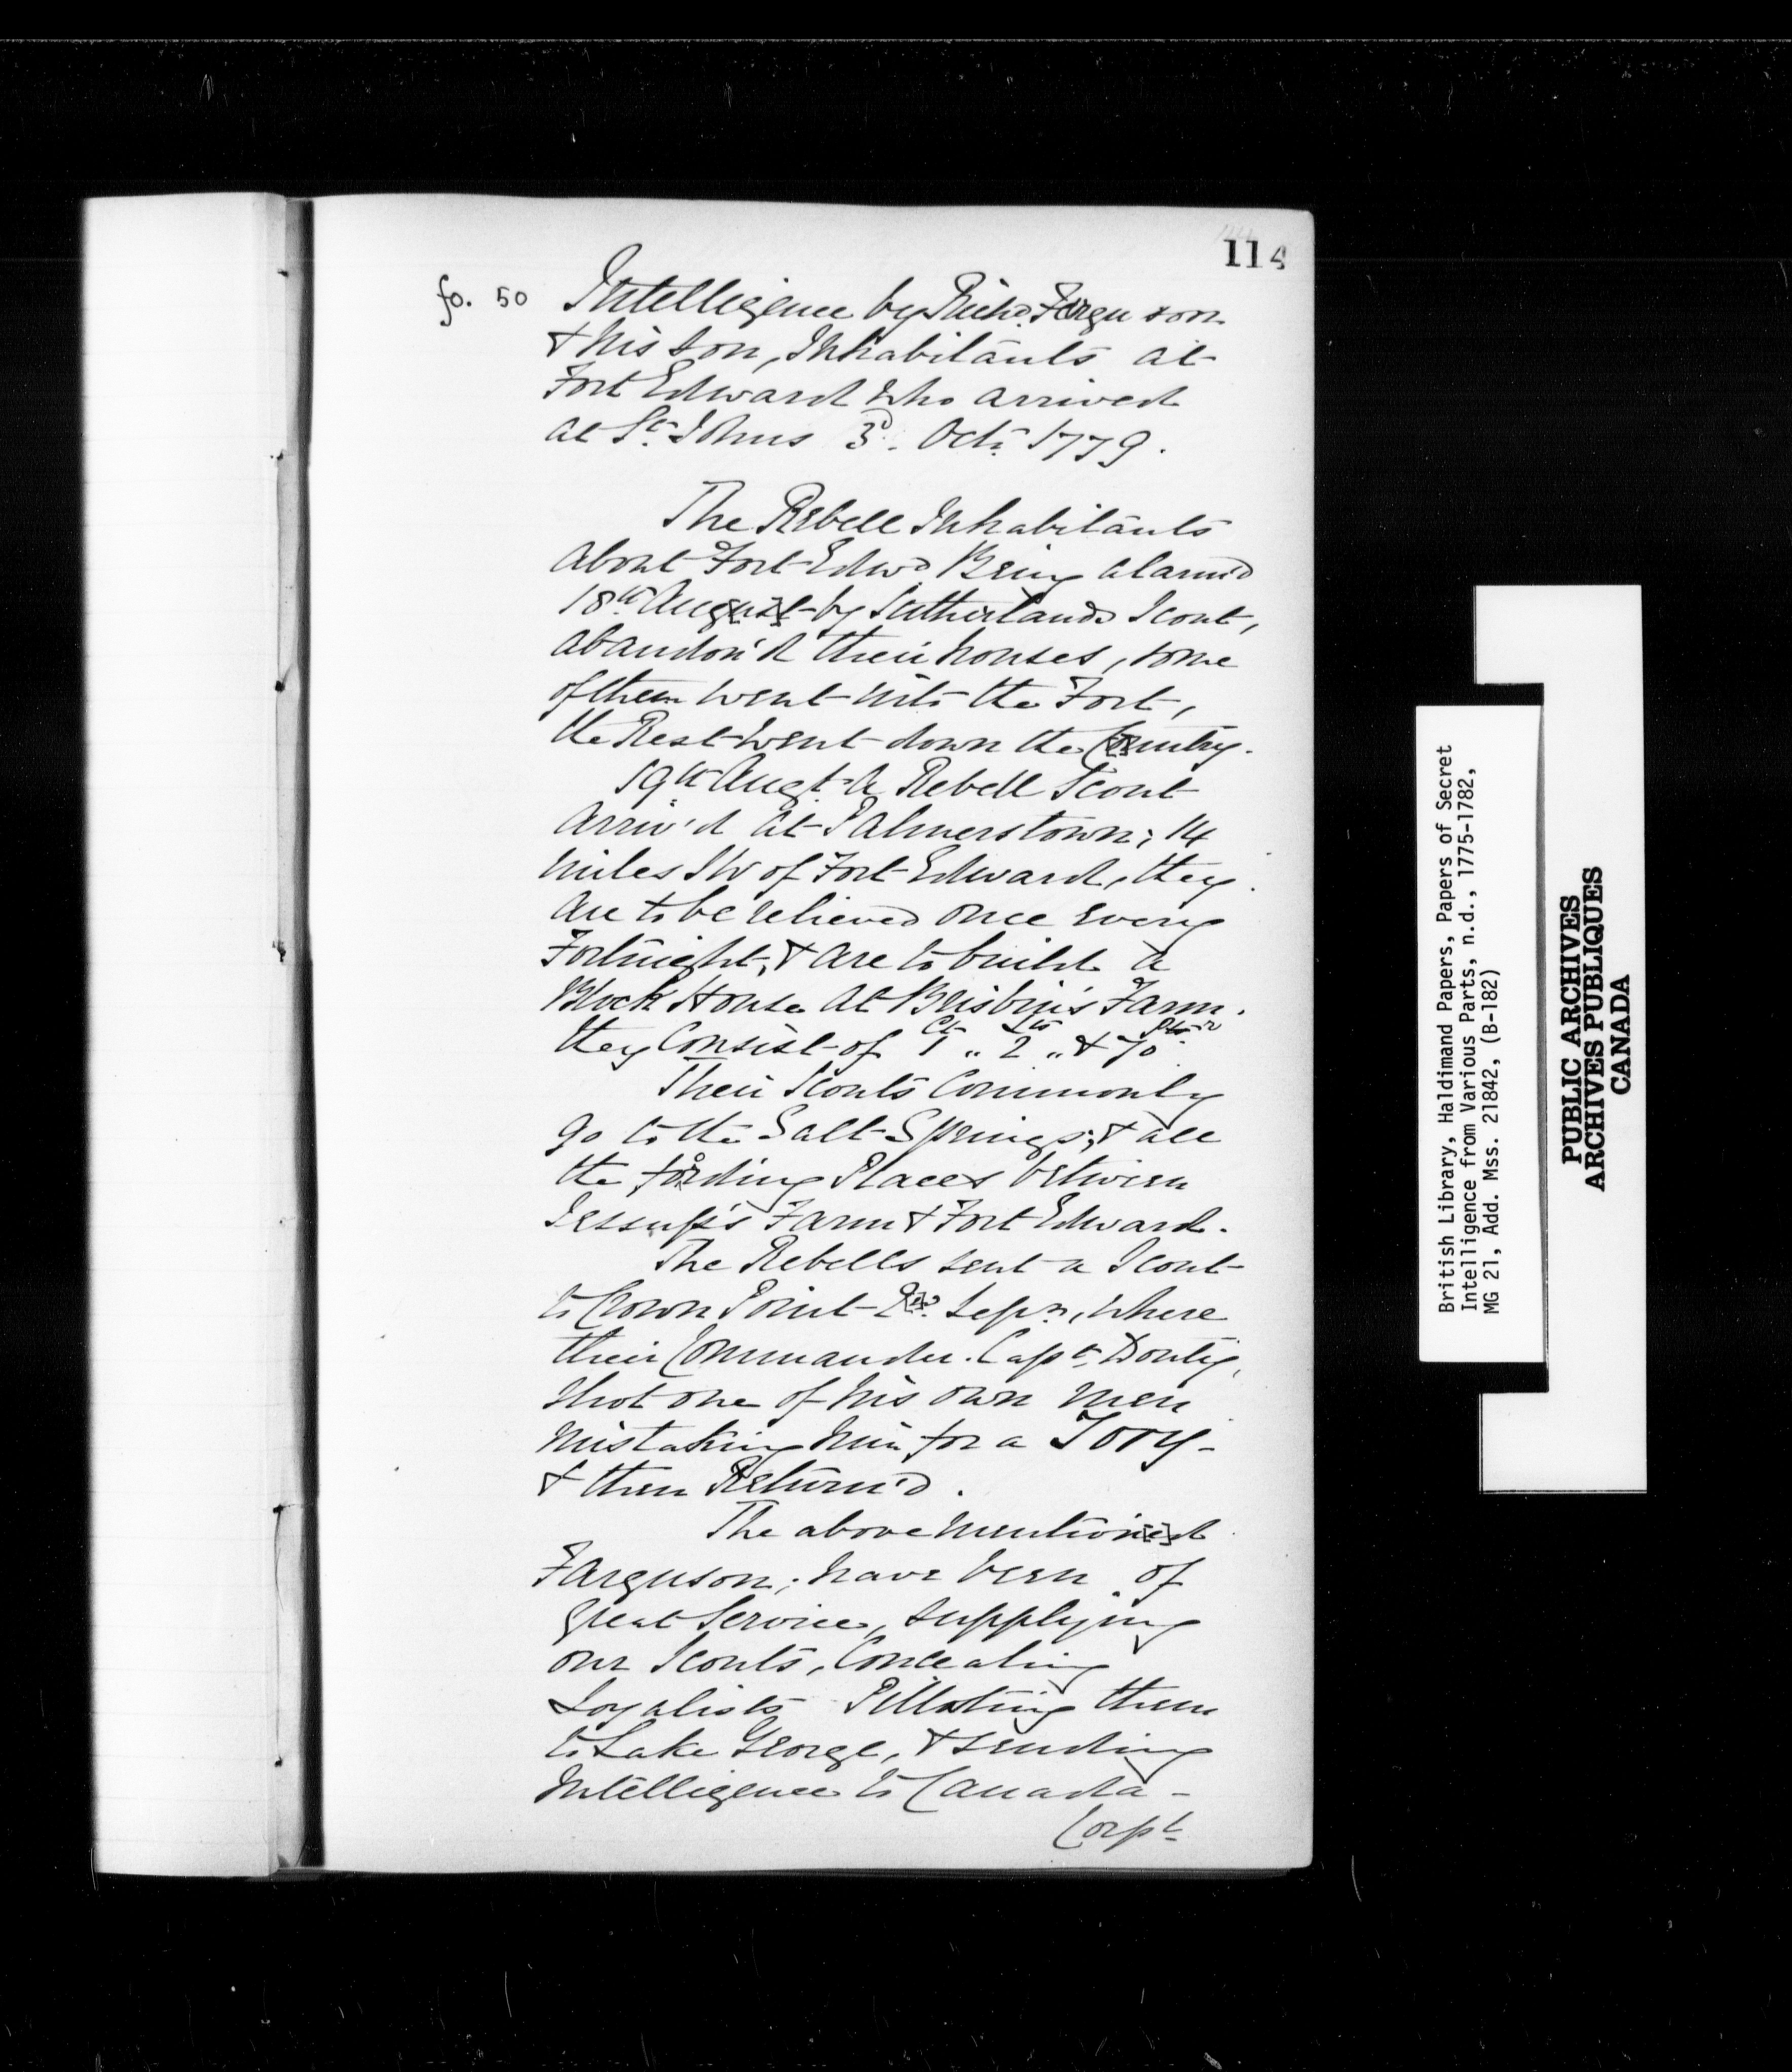 114
fo. 50 Intelligence by Richd. Ferguson
& his son, Inhabitants at
Fort Edward who arrived
at St. Johns 3d. Octr. 1779.
The Rebell Inhabitants
about Fort Edwd Being alarm'd
18th Aug[us]t by Sutherlands Scout,
abandon'd their houses, some
of them went into the Fort,
the Rest went down the C[o]untry.
19th Augt. A Rebell Scout
Arriv'd at Palmerstown; 14
miles SW of Fort Edward, they
are to be relieved once every
Fortnight, & are to build a
Block House at Brisbin's Farm.
they Consist of 1 Ct. „ 2 Lts „ & 70
Their Scouts Commonly
go to the Salt Springs; & all
the fording Places between
Jessup's Farm & Fort Edward.
The Rebells sent a Scout
to Crown Point Sepr., where
their Commander. Capt.
shot one of his own men
mistaking him for a Tory -
& then Return'd.
The above mention[e]d
Farguson; have been of
great Service, supplying
our Scouts, Concealing
Loyalists Pilloting them
to Lake George, & sending
Intelligence to Canada -
Corpl.
British Library, Haldimand Papers, Papers of Secret
Intelligence from Various Parts, n.d., 1775-1782,
MG 21, Add. Mss. 21842, (B-182)
PUBLIC ARCHIVES
ARCHIVES PUBLIQUES
CANADA